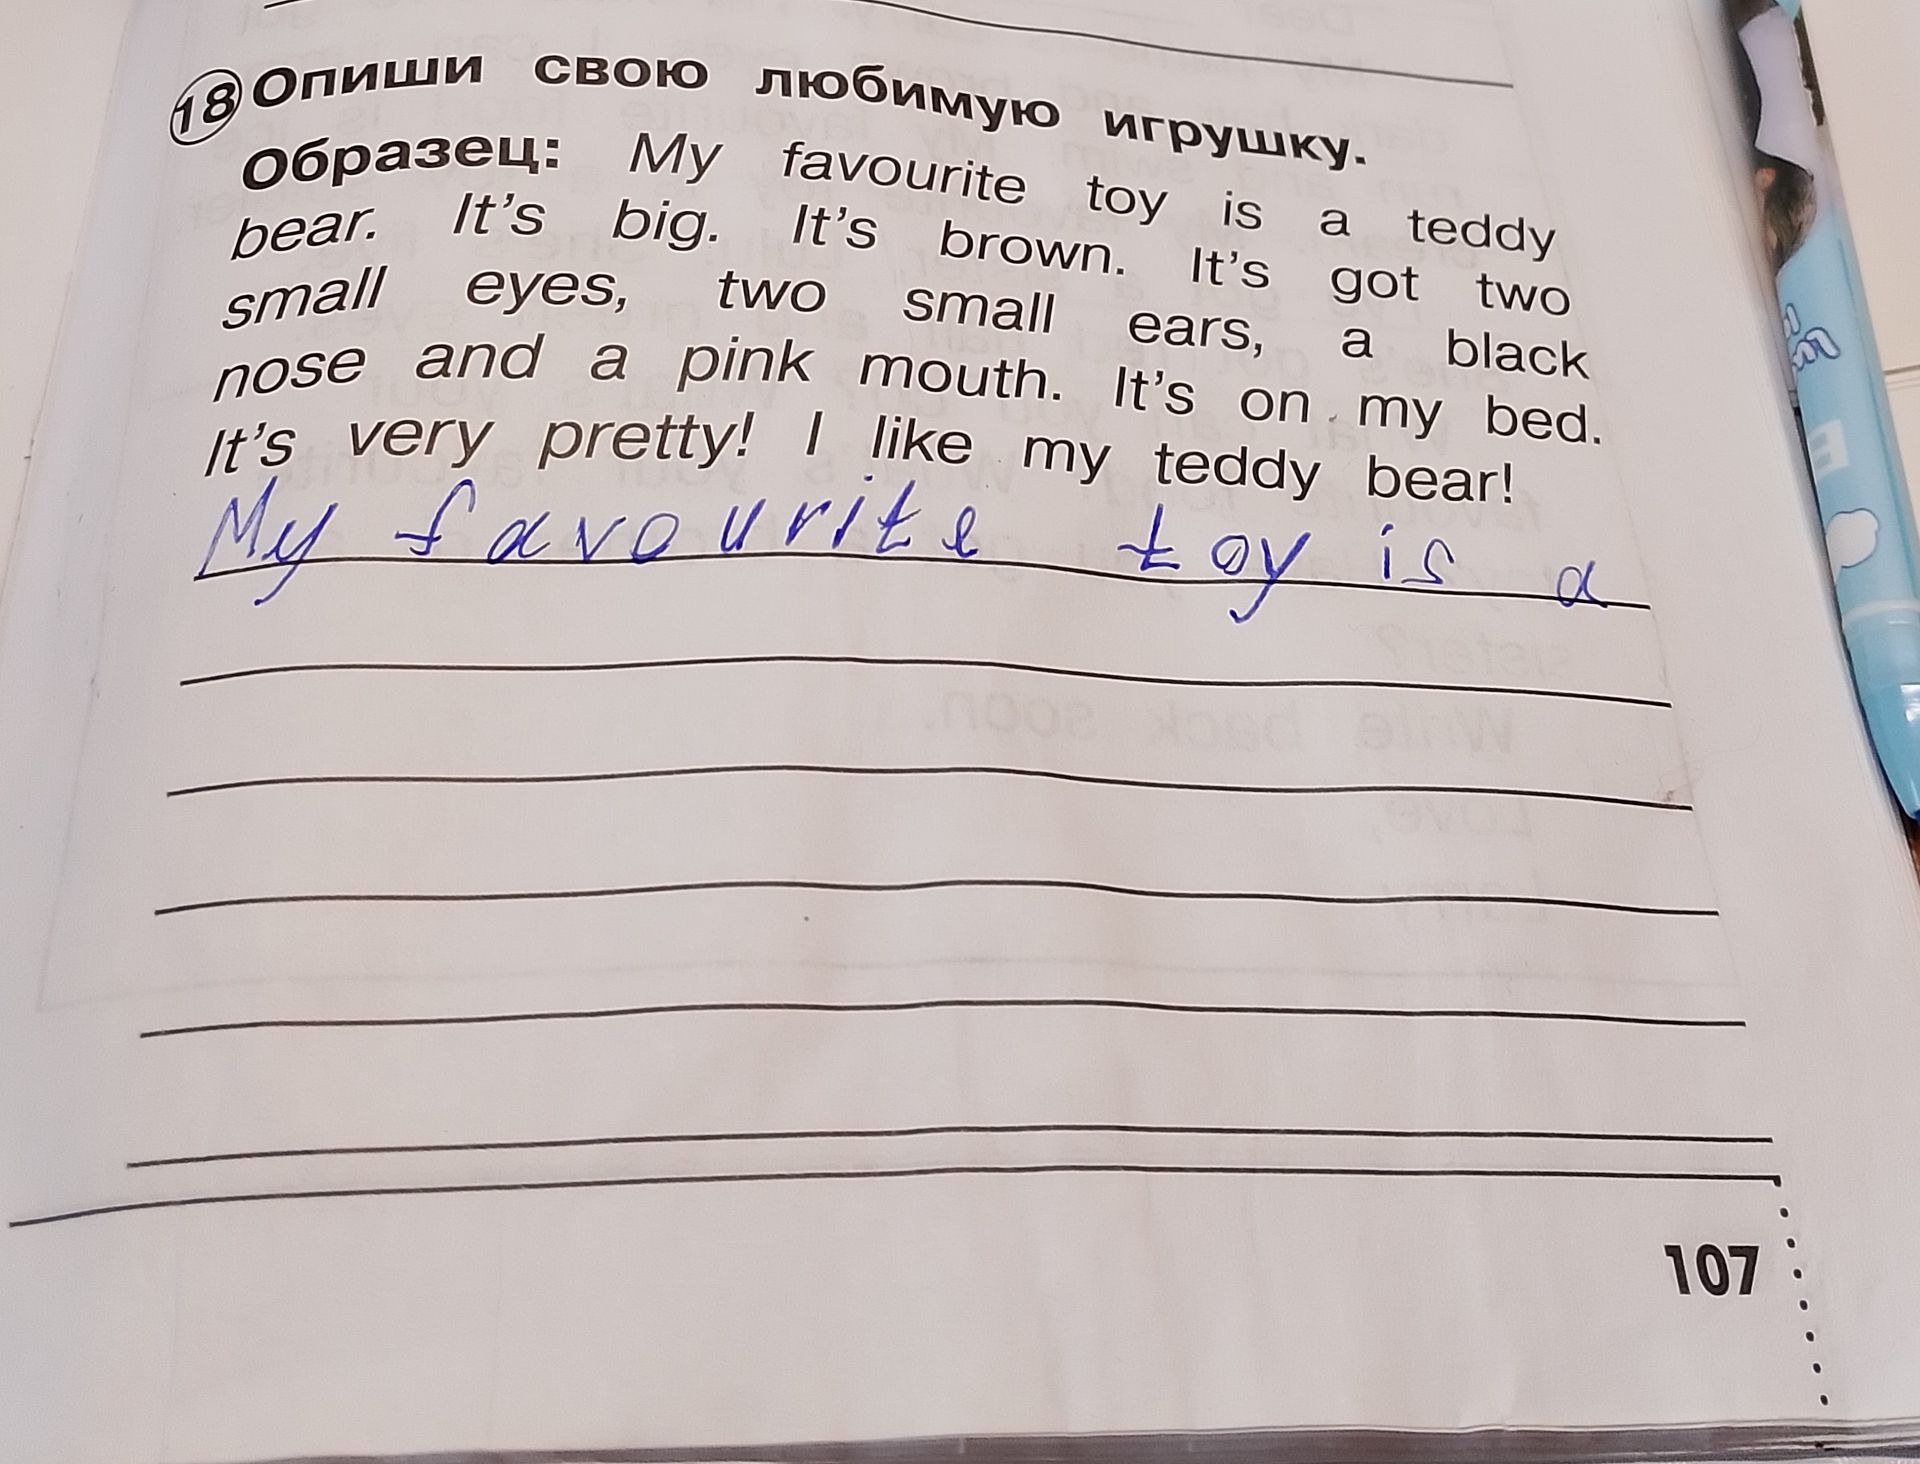 18 Опиши свою любимую игрушку.
Образец: My favourite toy is a teddy
bear. It's big. It's brown. It's got two
small eyes, two small ears, a black
nose and a pink mouth. It's on my bed.
It's very pretty! I like my teddy bear!
My favourite toy is a
107